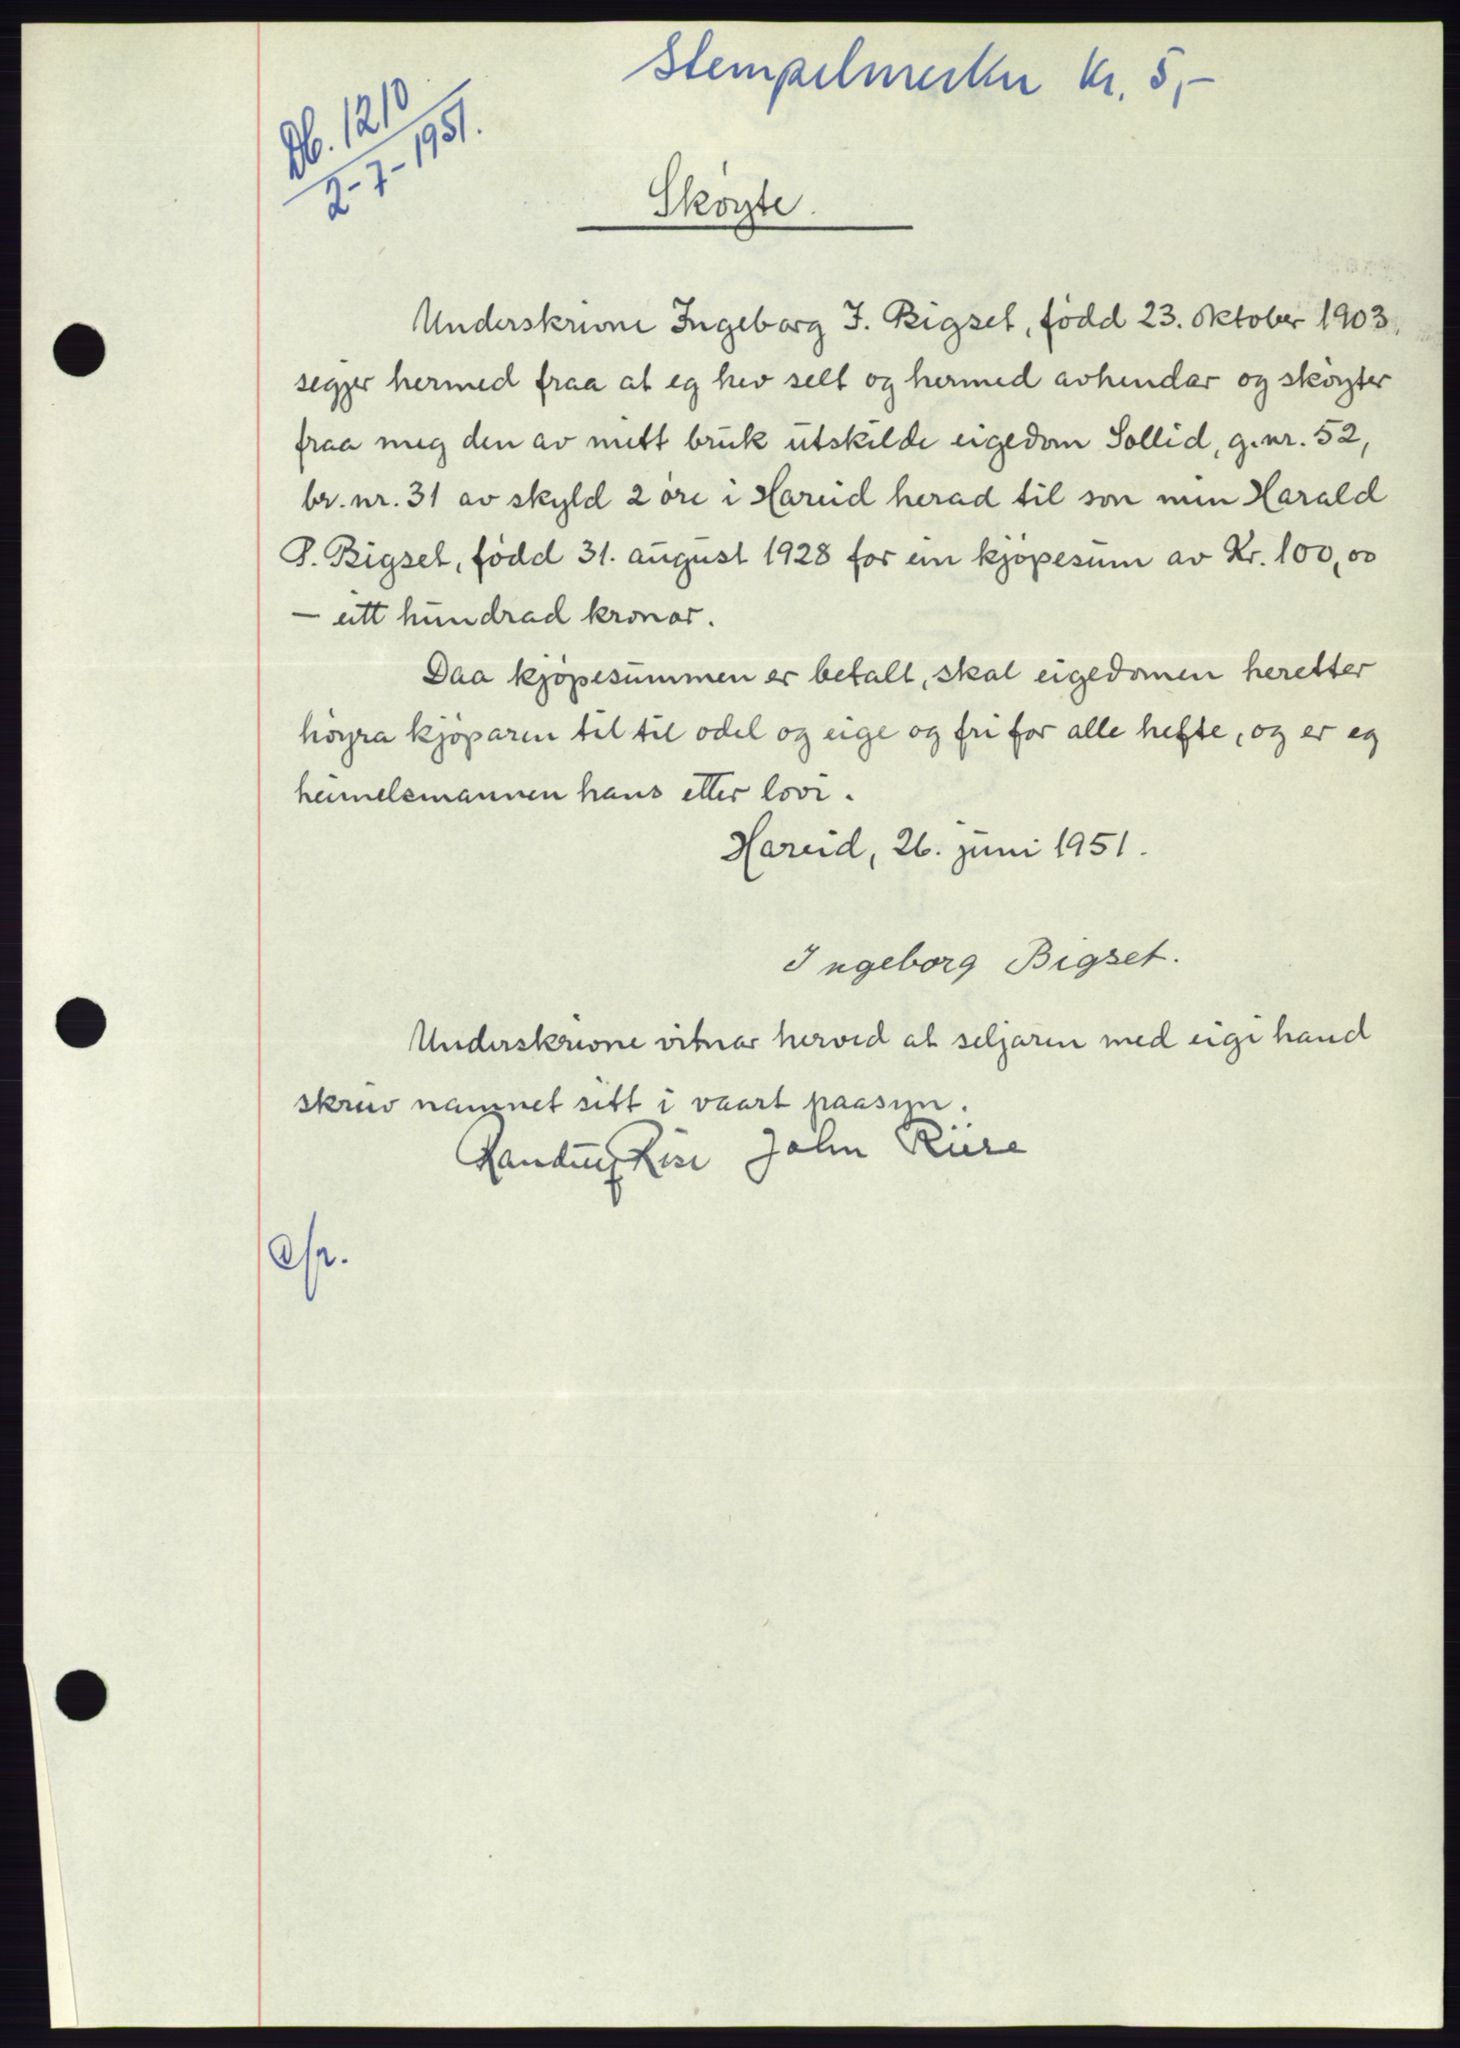 Stempelmerker kr. 5,-
Db. 1210
2-7-1951.
Skøyte.
Underskrivne Ingeborg J. Bigset, fødd 23. oktober 1903,
segjer hermed fraa at eg hev selt og hermed avhendar og skøyter
fraa meg den av mitt bruk utskilde eigedom Sollid, g.nr. 52,
br.nr. 31 av skyld 2 øre i Hareid herad til son min Harald
P. Bigset, fødd 31. august 1928 for ein kjøpesum av Kr. 100,00
- eitt hundrad kronor.
Daa kjøpesummen er betalt, skal eigedomen heretter
høyra kjøparen til til odel og eige og fri for alle hefte, og er eg
heimelsmannen hans etter lovi.
Hareid, 26. juni 1951.
Ingeborg Bigset.
Underskrivne vitnar herved at seljaren med eigi hand
skreiv namnet sitt i vaart paasyn.
Rise John Riise